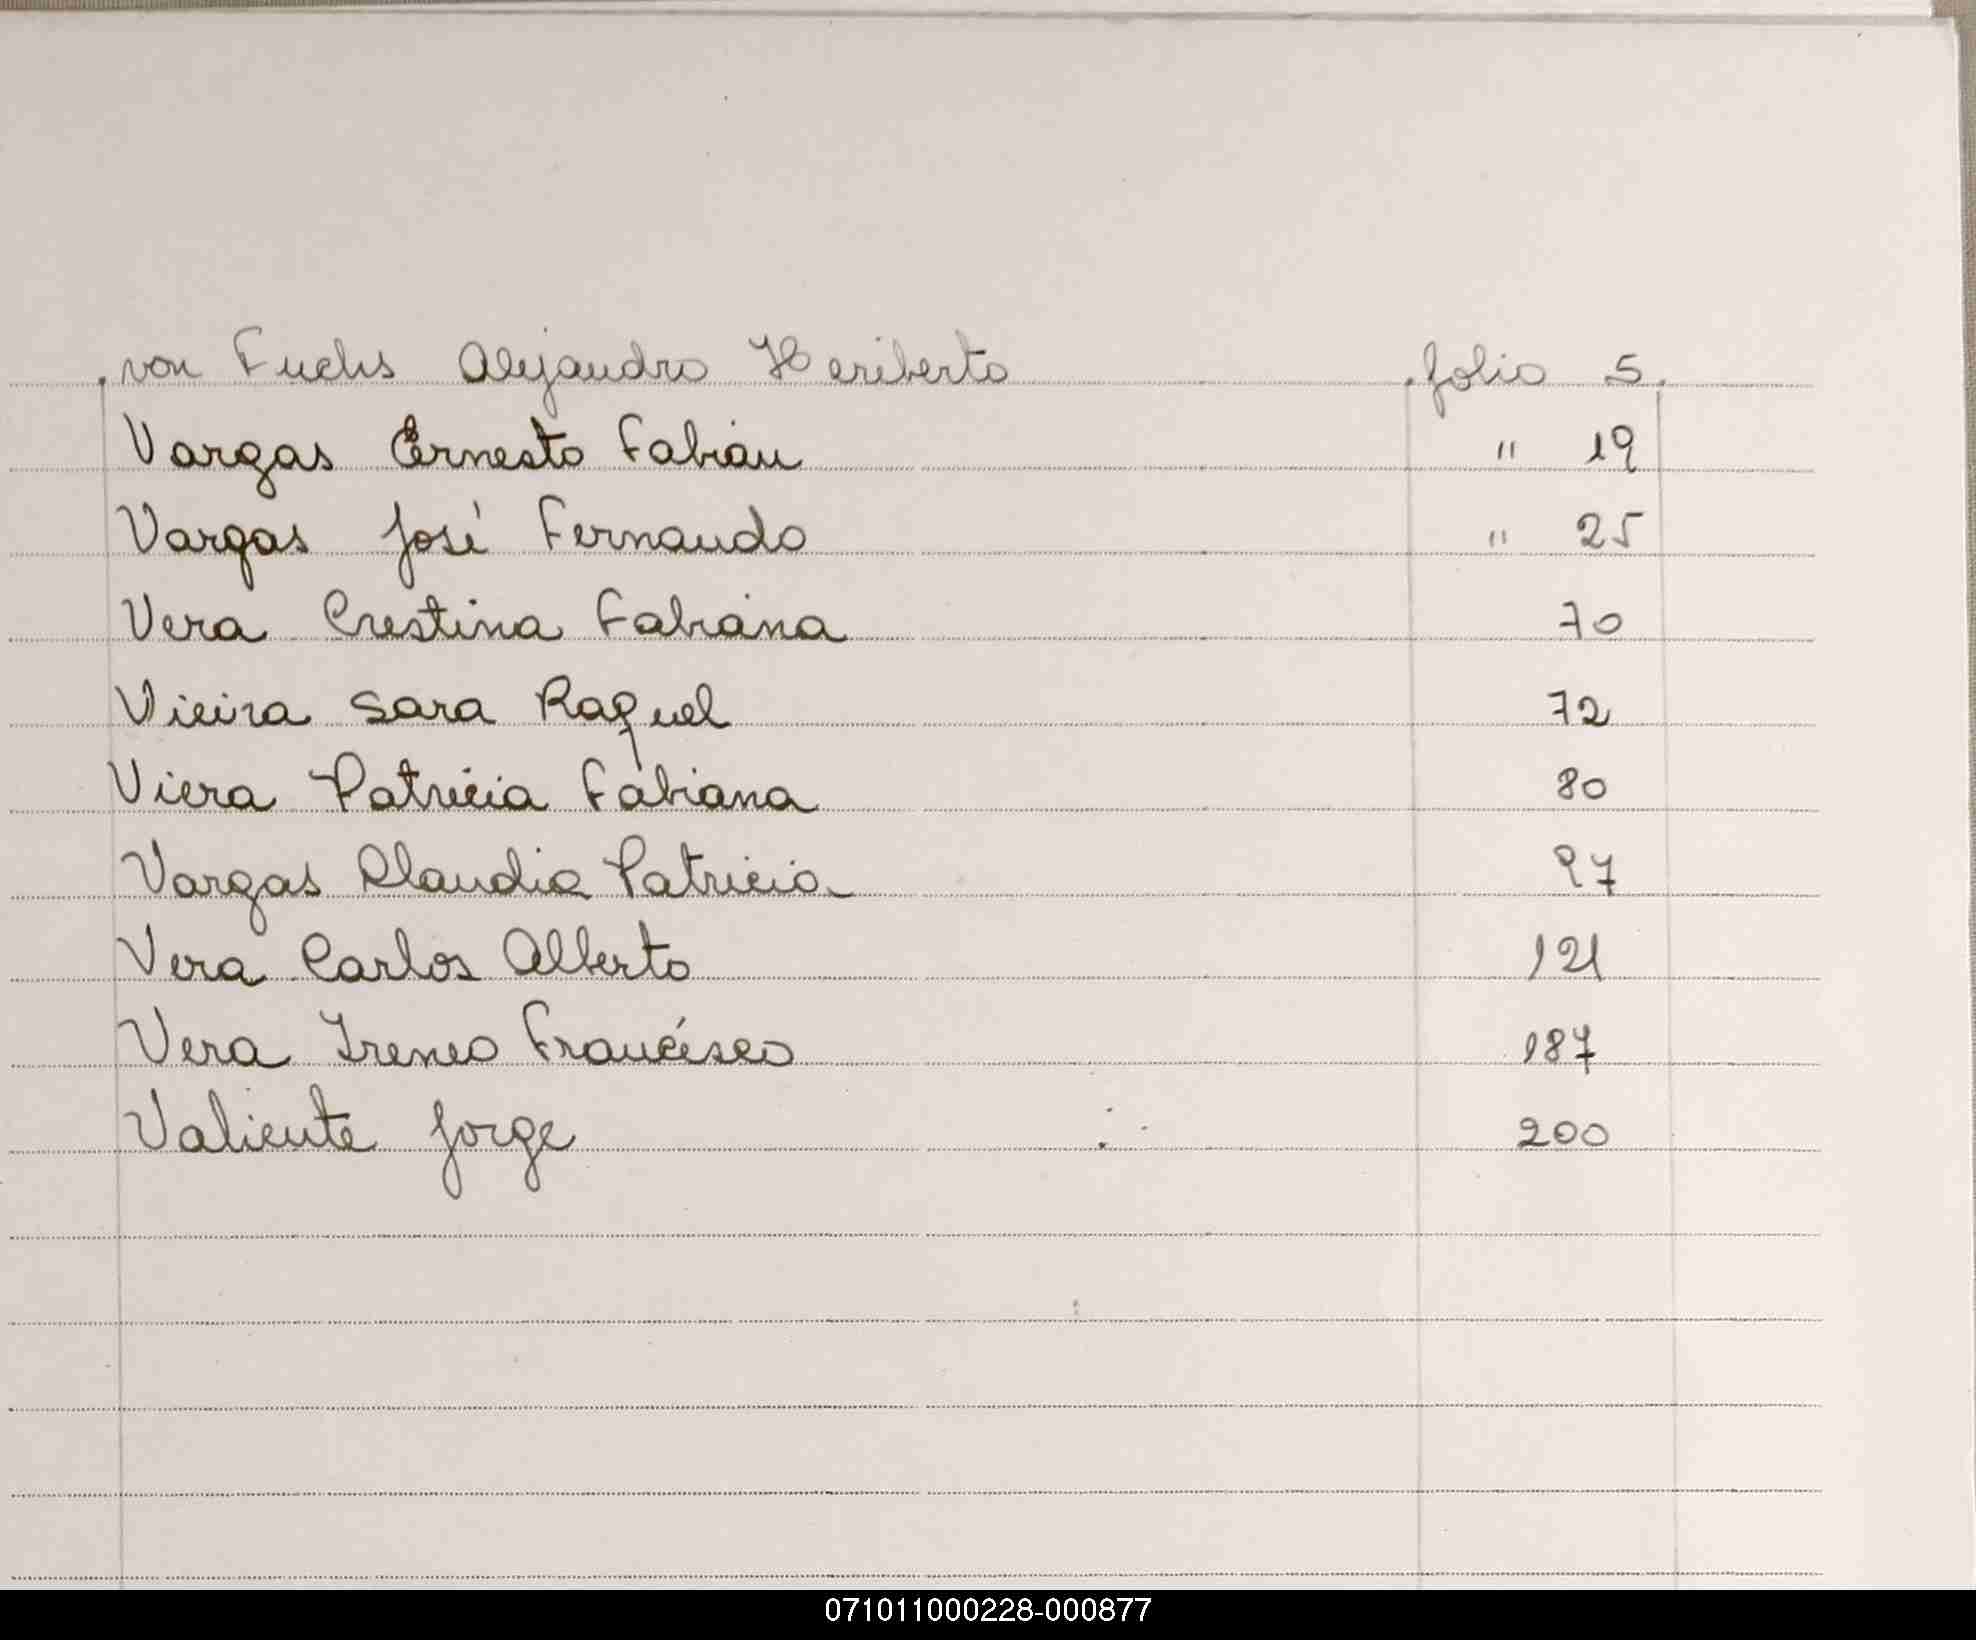 von Fuchs Alejandro Heriberto folio 5.
Vargas Ernesto Fabián " 19
Vargas José Fernando " 25
Vera Crestina Fabiana 70
Vieira Sara Raquel 72
Viera Patricia Fabiana 80
Vargas Claudia Patricia 97
Vera Carlos Alberto 121
Vera Ireneo Francisco 187
Valiente Jorge 200
071011000228-000877